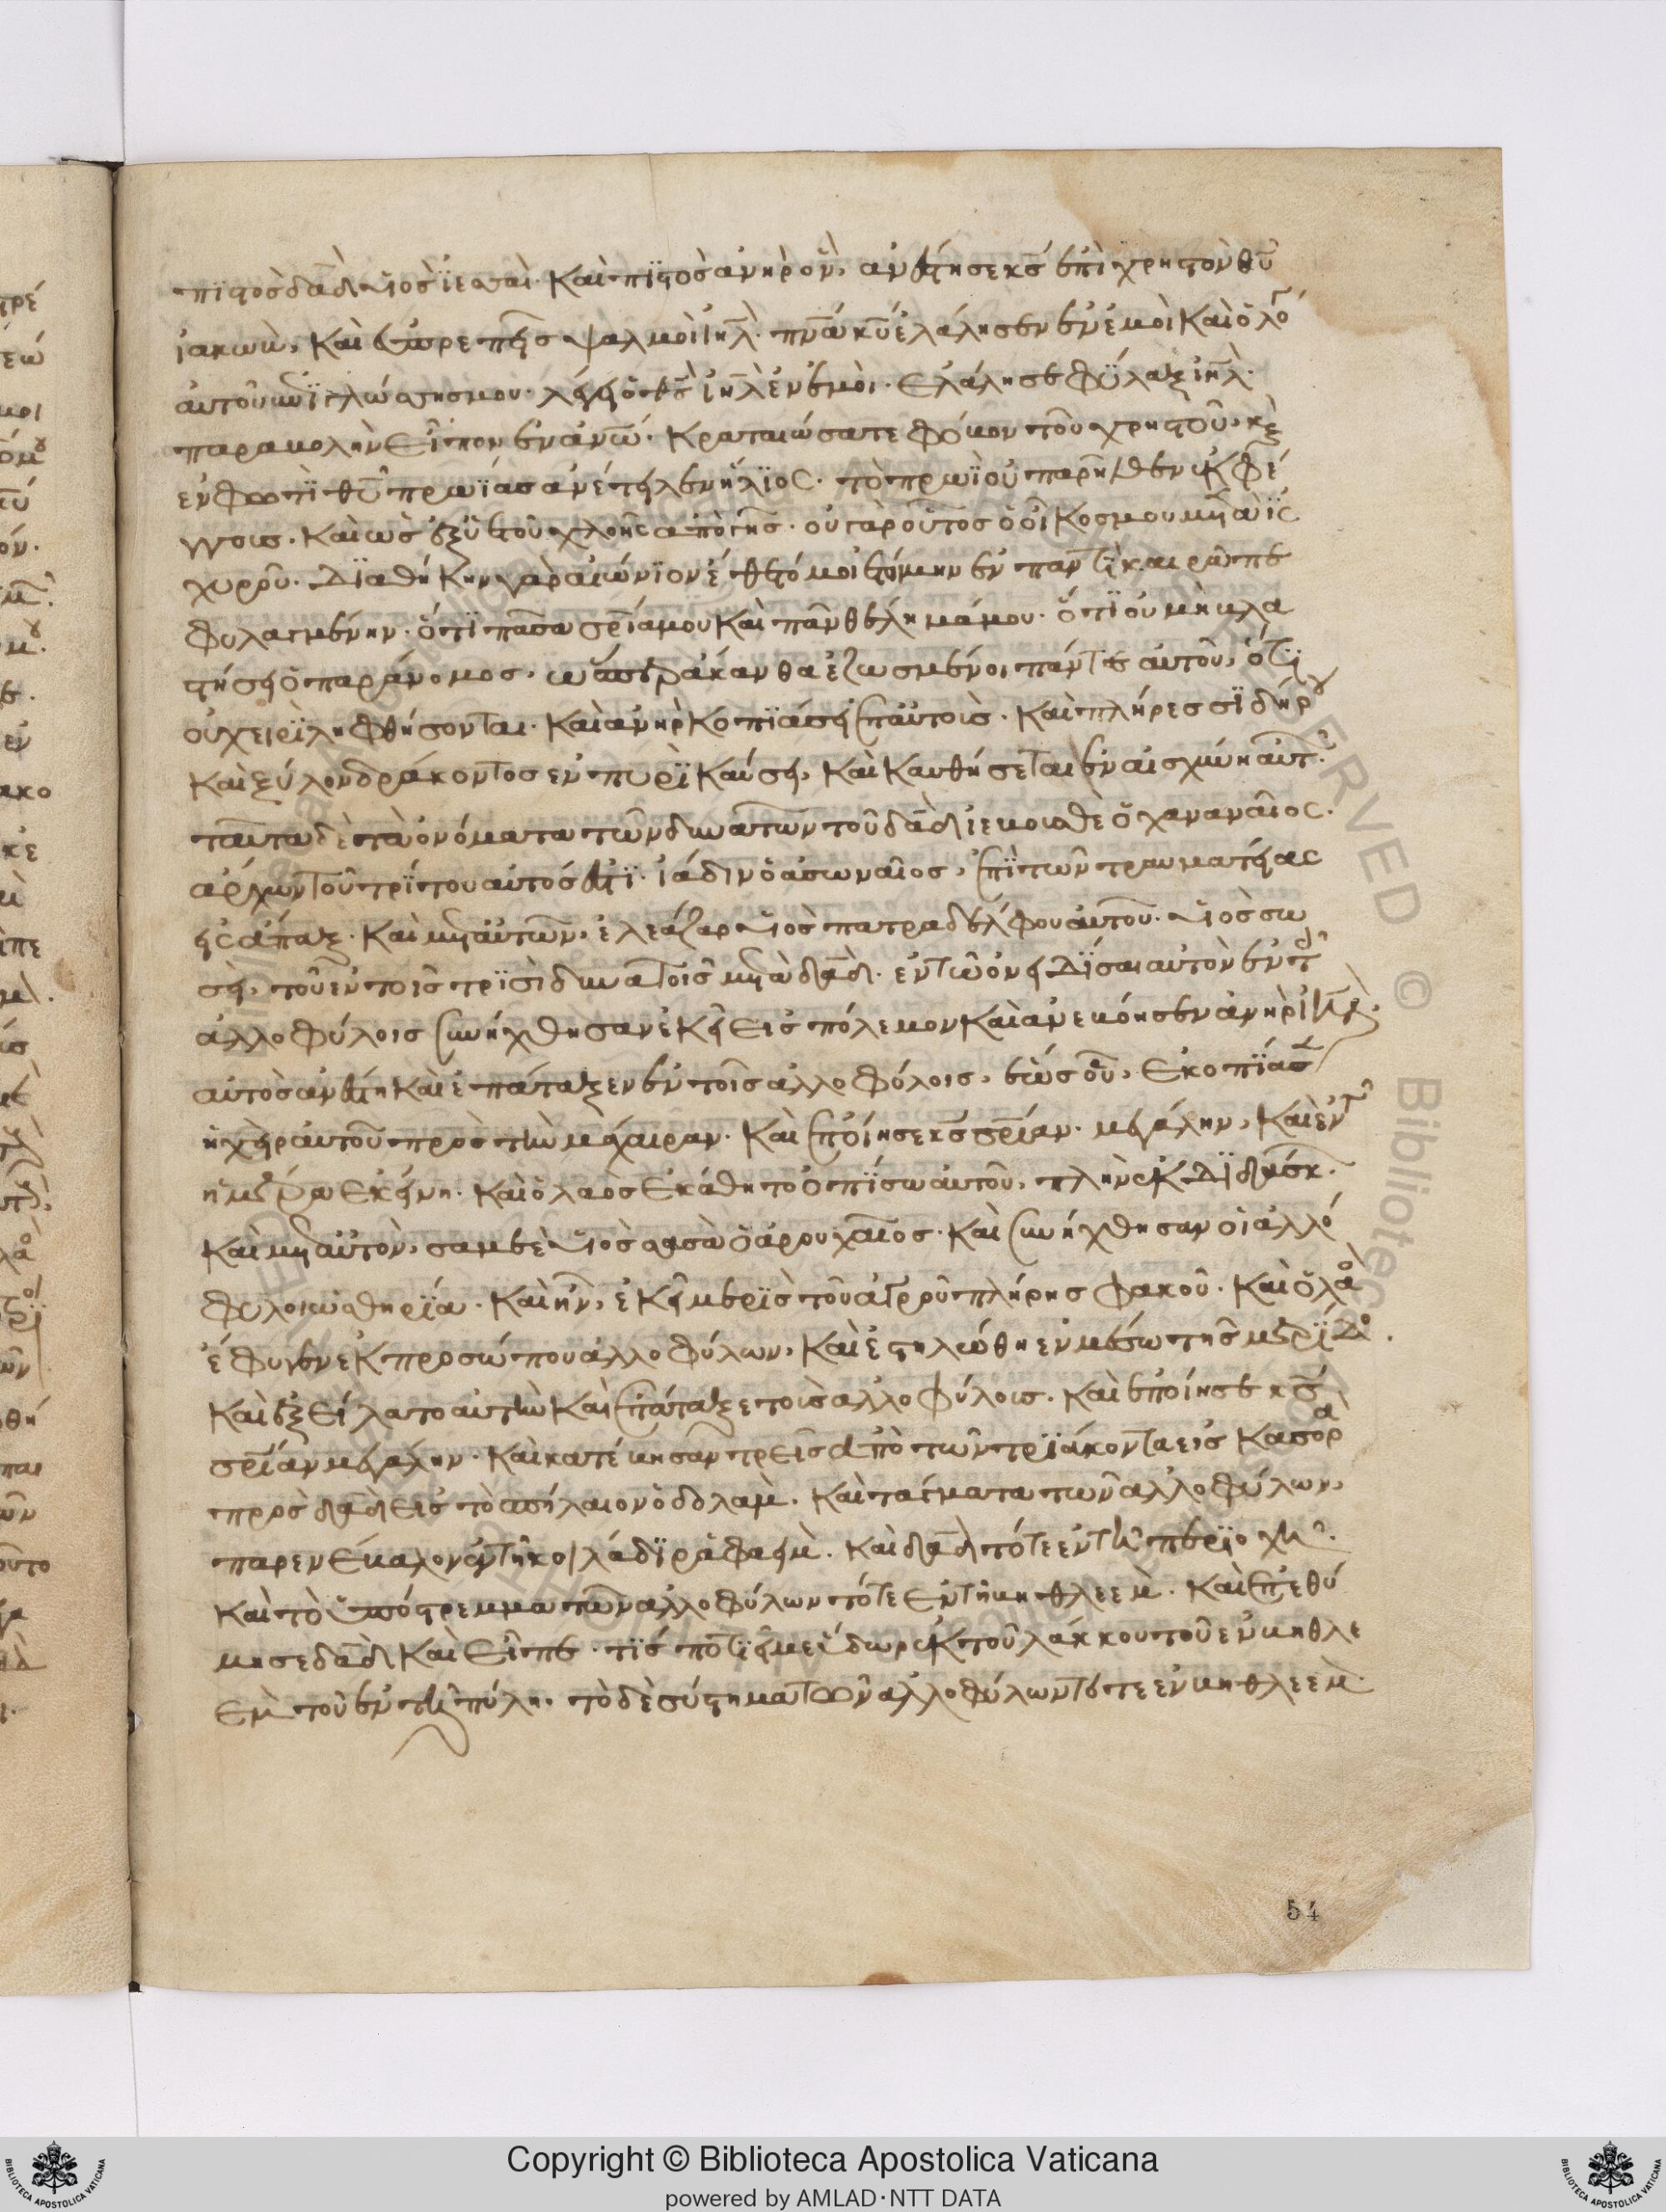 πιστὸς δαδ υἱὸς ἰεσσαὶ· καὶ πϊστὸς ἀνὴρ ὃν, ἀνέστησε κς ἐπὶ χρηστὸν θυ
ἰακωβ, καὶ εὐπρεπεῖς ψαλμοὶ ιηλ. πνα κυ ἐλάλησεν ἐν ἐμοὶ καὶ ὁ λό
αὐτοῦ ἐπὶ γλώσσης μου· λέγει ὁ θς ιηλ ἐν ἐμοὶ· ἐλάλησε φύλαξ ιηλ.
παραβολὴν εἶπον ἐν ανω· κραταιώσατε φόβον τοῦ χρηστοῦ, κὲ
ἐν φωτὶ θυ πρωΐας ἀνέτειλεν ἥλϊος. τὸ πρωῒ οὐ παρῆλθεν ἐκ φέ
γγους. καὶ ὡς ἐξ ὑετοῦ χλόης ἀπὸ γῆς. οὐ γὰρ οὗτος ὁ οἶκος μου μετὰ ἰσ
χυροῦ. Διαθήκην γὰρ αἰώνϊον ἔθετό μοι ἑτοίμην ἐν παντὶ καιρῶ πε
φυλαγμένην. ὅτι πᾶσα σρία μου καὶ πᾶν θέλημά μου. ὅτϊ οὐ μὴ βλα
στήση ὁ παράνομος, ὥσπερ ἄκανθα ἐζωσμένοι πάντες αὐτοῦ, ὅτϊ
οὐ χειρὶ ληφθήσονται. καὶ ἀνὴρ κοπϊάσει ἐπ αὐτοῖς. καὶ πλῆρες σϊδήρου
καὶ ξύλον δράκοντος ἐν πυρῒ καύσει, καὶ καυθήσεται ἐν αἰσχύνη αὐτ.
ταῦτα δὲ τὰ ὀνόματα τῶν δυνατῶν τοῦ δαδ ἰεβοσθὲ ὁ χαναναῖος.
ἄρχων τοῦ τρίτου αὐτός ἐστϊ. ἰάδιν ὁ ἀσωναῖος, ἐπῒ τῶν τραυματείας
εἰς ἅπαξ. καὶ μετ αὐτῶν, ἐλεάζαρ υἱὸς πατραδέλφου αὐτοῦ. υἱὸς σω
σεί, τοῦ ἐν τοῖς τρϊσὶ δυνατοῖς μετὰ δαδ. ἐν τῶ ὀνειδίσαι αὐτὸν ἐν τ
ἀλλοφύλοις συνήχθησαν ἐκεῖ εἰς πόλεμον καὶ ἀνεβόησεν ἀνὴρ ιηλ.
αὐτὸς ἀνέστη καὶ ἐπάταξεν ἐν τοῖς ἀλλοφύλοις, ἕως οὗ, ἐκοπϊάσ
ἡ χεὶρ αὐτοῦ πρὸς τὴν μάχαιραν. καὶ ἐποίησε κς σρίαν. μεγάλην, καὶ ἐν τ
ἡμέρα ἐκείνη. καὶ ὁ λαὸς ἐκάθητο ὀπίσω αὐτοῦ, πλὴν ἐκδιδύσκ.
καὶ μετ αὐτὸν, σαμεὲ υἱὸς ασὰ ὁ ἀρουχαῖος. καὶ συνήχθησαν οἱ ἀλλό
φυλοι εἰς θηρία. καὶ ἦν, ἐκεῖ μερὶς τοῦ ἀγροῦ πλήρης φακοῦ. καὶ ὁ λαὸ
ἔφυγεν ἐκ προσώπου ἀλλοφύλων, καὶ ἐστηλώθη ἐν μέσω τῆς μερίδο.
καὶ ἐξείλατο αὐτὴν καὶ ἐπάταξε τοῖς ἀλλοφύλοις. καὶ ἐποίησε κς
σρίαν μεγάλην. καὶ κατέβησαν τρεῖς ἀπὸ τῶν τρϊάκοντα εἰς κασορα
πρὸς δαδ εἰς τὸ σπήλαιον ὀδολάμ. καὶ τάγματα τῶν ἀλλοφύλων,
παρενέβαλον ἐν τῆ κοιλάδϊ ῥαφαείμ. καὶ δαδ τότε ἐν τῆ περϊοχῆ.
καὶ τὸ ὑπόστρεμμα τῶν ἀλλοφύλων τότε ἐν τῆ βηθλεέμ. καὶ ἐπεθύ
μησε δαδ καὶ εἶπε. τίς ποτϊεῖ με ὕδωρ ἐκ τοῦ λάκκου τοῦ ἐν βηθλε
ὲμ τοῦ ἐν τῆ πύλη. τὸ δὲ σύστημα τῶν ἀλλοφύλων τότε ἐν βηθλεέμ
54
Copyright © Biblioteca Apostolica Vaticana
powered by AMLAD·NTT DATA